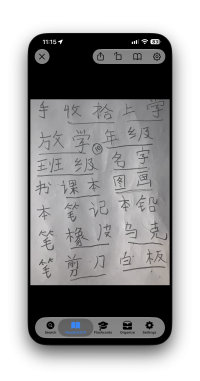 11:15
手 收 拾 上 学
放 学 年 级
班 级 名 字
书 课 本 图 画
本 笔 记 本 铅
笔 橡 皮 乌 克
笔 剪 刀 白 板
Flashcards
Settings